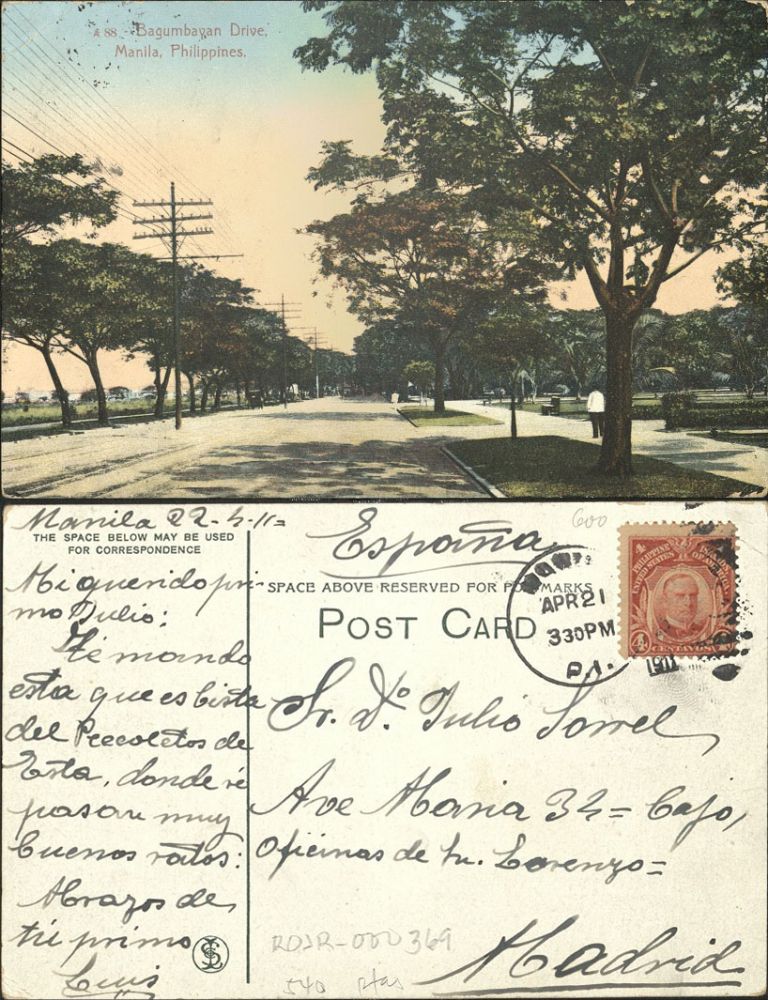 A 88 - Bagumbayan Drive,
Manila, Philippines.
Manila 22-4-11=
THE SPACE BELOW MAY BE USED
FOR CORRESPONDENCE
Mi querido pri-
mo Julio:
Te mando
esta que es bista
del Recoletos de
Esta, donde se
pasan muy
buenos ratos:
Abrazos de,
tu primo
Luis
España
600
SPACE ABOVE RESERVED FOR POSTMARKS
POST CARD
MANILA
APR 21
330PM
P.I.
1911
PHILIPPINE ISLANDS
UNITED STATES OF AMERICA
4 CENTAVOS 4
Sr. Dn. Julio Sorrel
Ave Maria 34= Bajo,
Oficinas de
Lorenzo=
Madrid
RDJR-000369
540 ptas